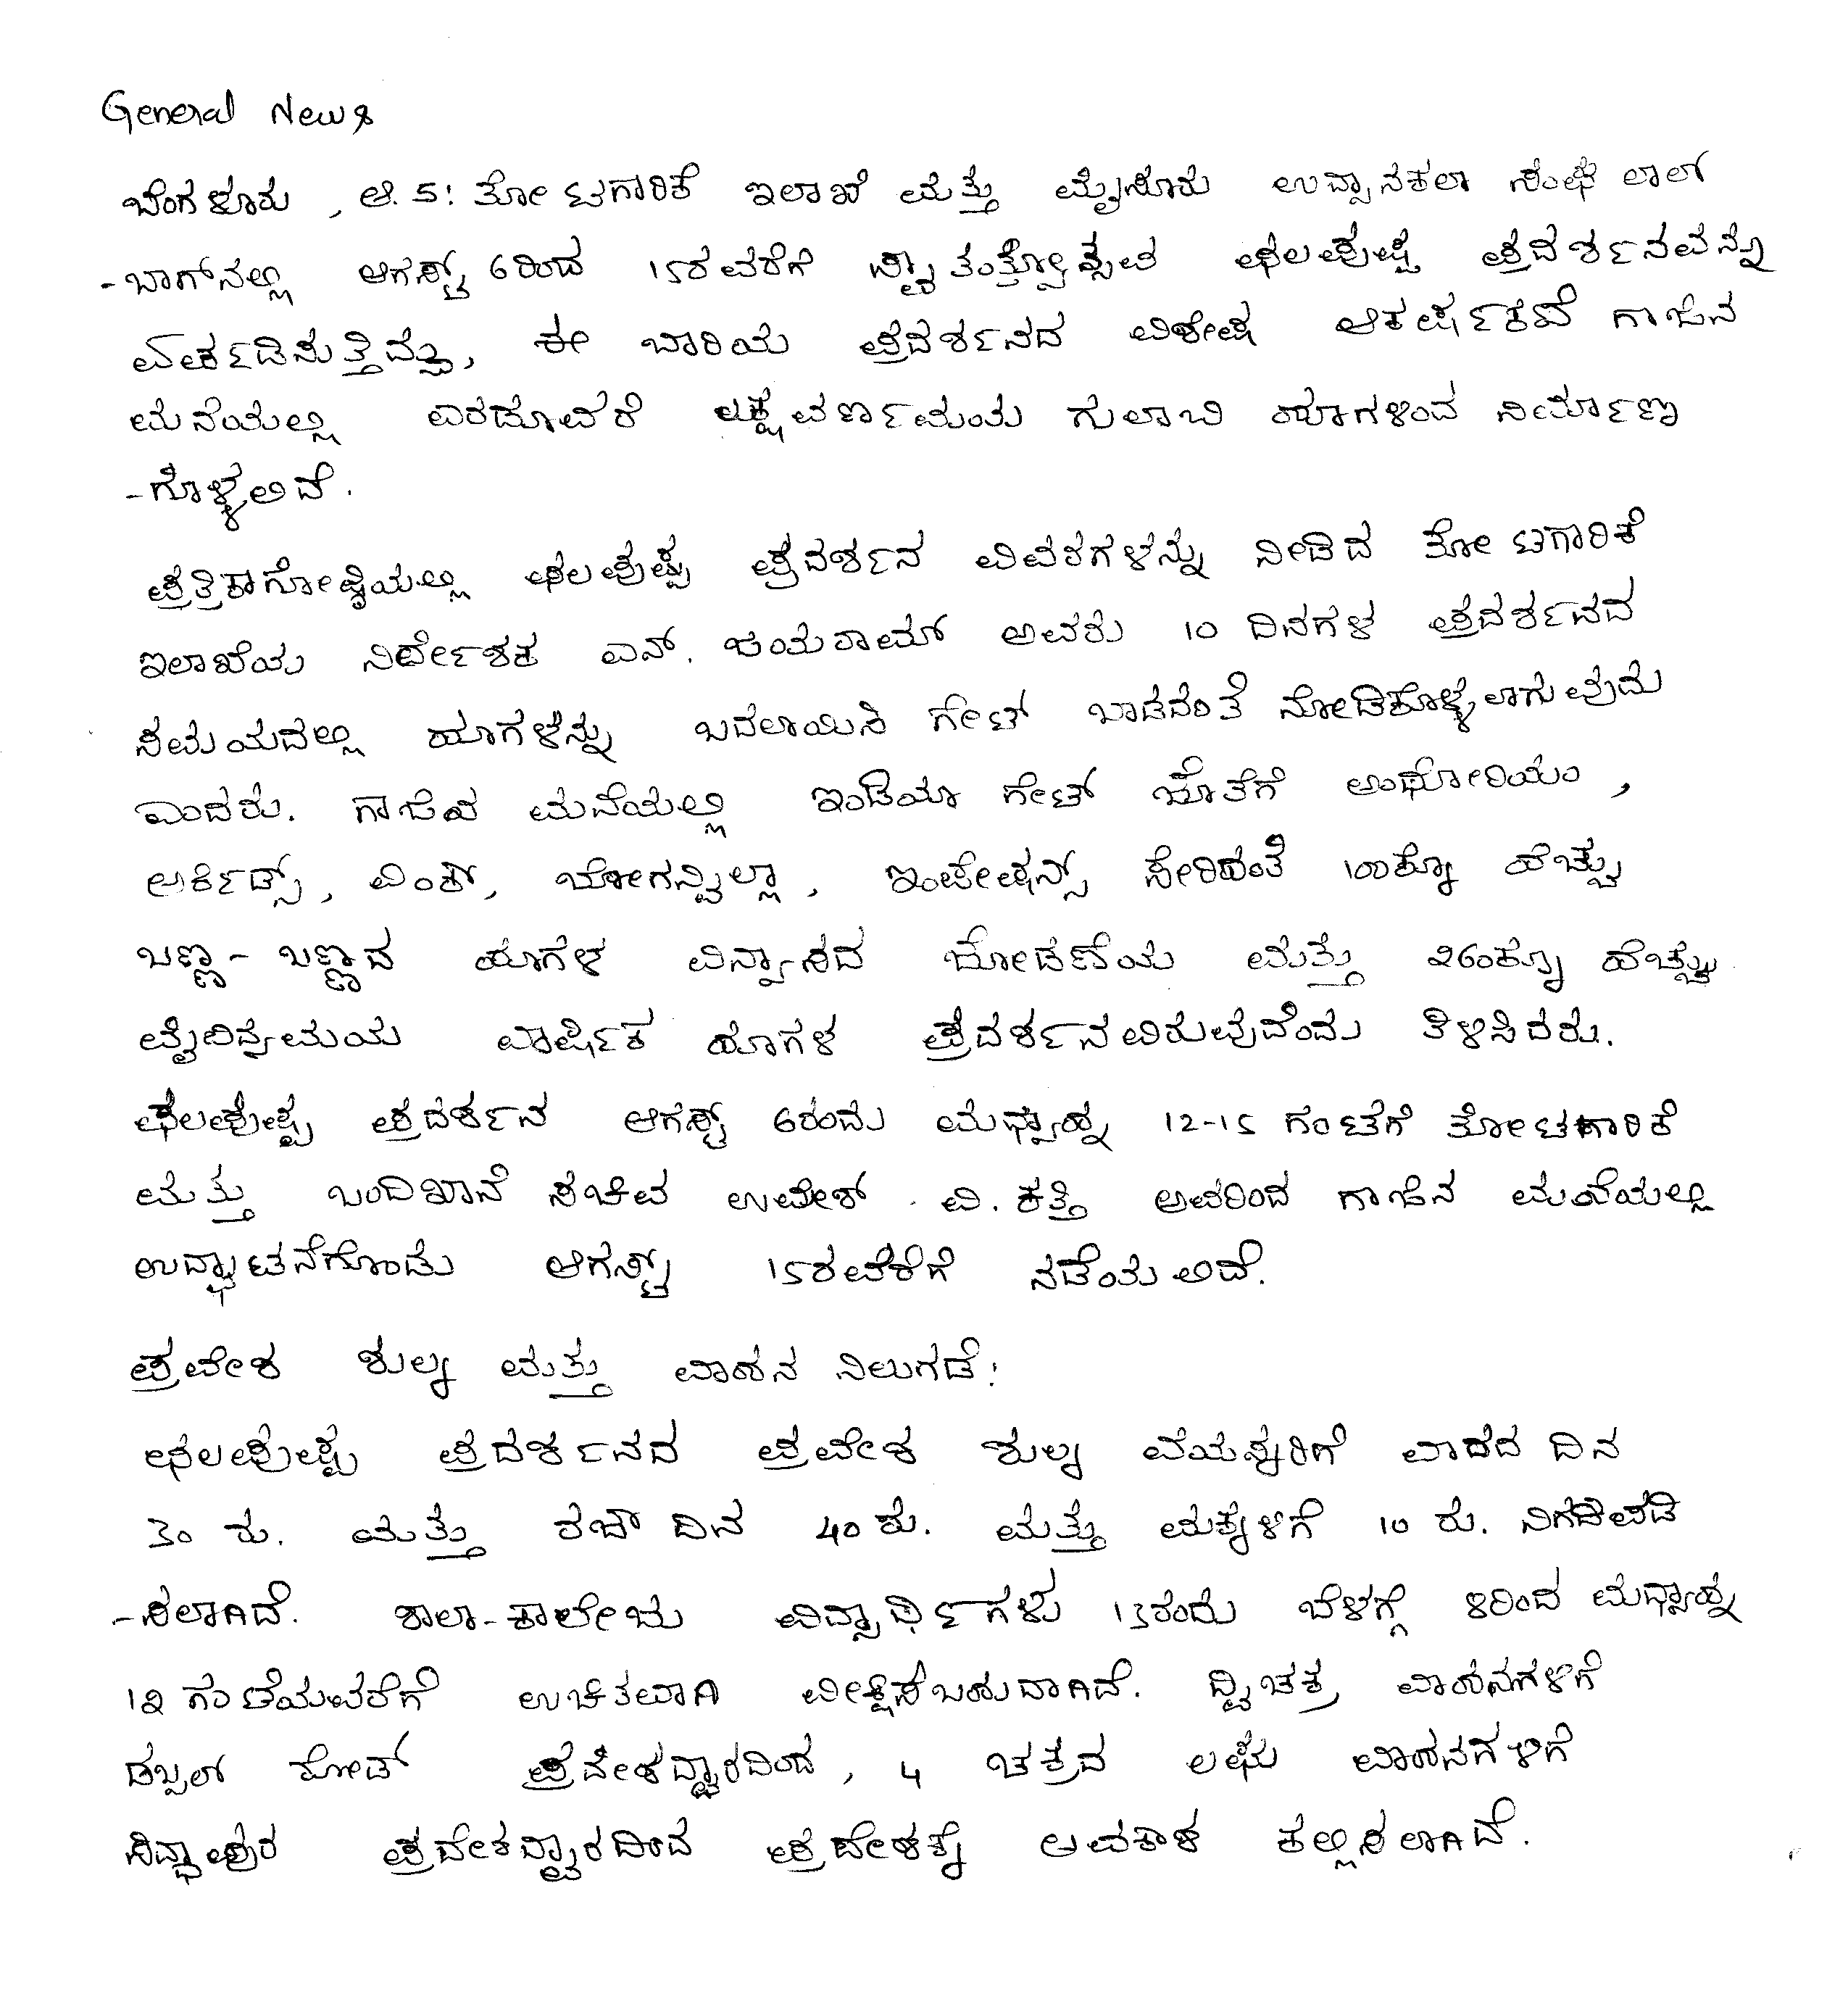 General News
ಬೆಂಗಳೂರು , ಆ. 5: ತೋಟಗಾರಿಕೆ ಇಲಾಖೆ ಮತ್ತು ಮೈಸೂರು ಉದ್ಯಾನಕಲಾ ಸಂಘ ಲಾಲ್
-ಬಾಗ್‌ನಲ್ಲಿ ಆಗಸ್ಟ್ 6ರಿಂದ 15ರವರೆಗೆ ಸ್ವಾತಂತ್ರ್ಯೋತ್ಸವ ಫಲಪುಷ್ಪ ಪ್ರದರ್ಶನವನ್ನು
ಏರ್ಪಡಿಸುತ್ತಿದ್ದು, ಈ ಬಾರಿಯ ಪ್ರದರ್ಶನದ ವಿಶೇಷ ಆಕರ್ಷಕವೆ ಗಾಜಿನ
ಮನೆಯಲ್ಲಿ ಎರಡೂವರೆ ಲಕ್ಷ ವರ್ಣಮಯ ಗುಲಾಬಿ ಹೂಗಳಿಂದ ನಿರ್ಮಾಣ
-ಗೊಳ್ಳಲಿದೆ.
ಪತ್ರಿಕಾಗೋಷ್ಠಿಯಲ್ಲಿ ಫಲಪುಷ್ಪ ಪ್ರದರ್ಶನ ವಿವರಗಳನ್ನು ನೀಡಿದ ತೋಟಗಾರಿಕೆ
ಇಲಾಖೆಯ ನಿರ್ದೇಶಕ ಎನ್. ಜಯರಾಮ್ ಅವರು 10 ದಿನಗಳ ಪ್ರದರ್ಶನದ
ಸಮಯದಲ್ಲಿ ಹೂಗಳನ್ನು ಬದಲಾಯಿಸಿ ಗೇಟ್ ಬಾಡದಂತೆ ನೋಡಿಕೊಳ್ಳಲಾಗುವುದು
ಎಂದರು. ಗಾಜಿನ ಮನೆಯಲ್ಲಿ ಇಂಡಿಯಾ ಗೇಟ್ ಜೊತೆಗೆ ಅಂಥೋರಿಯಂ ,
ಆರ್ಕಿಡ್ಸ್, ವಿಂಕ್, ಬೋಗನ್ವಿಲ್ಲಾ, ಇಂಪೇಷನ್ಸ್ ಸೇರಿದಂತೆ 100ಕ್ಕೂ ಹೆಚ್ಚು
ಬಣ್ಣ-ಬಣ್ಣದ ಹೂಗಳ ವಿನ್ಯಾಸದ ಜೋಡಣೆಯ ಮತ್ತು 260ಕ್ಕೂ ಹೆಚ್ಚು
ವೈವಿಧ್ಯಮಯ ವಾರ್ಷಿಕ ಹೂಗಳ ಪ್ರದರ್ಶನವಿರುವುದೆಂದು ತಿಳಿಸಿದರು.
ಫಲಪುಷ್ಪ ಪ್ರದರ್ಶನ ಆಗಸ್ಟ್ 6ರಂದು ಮಧ್ಯಾಹ್ನ 12-15 ಗಂಟೆಗೆ ತೋಟಗಾರಿಕೆ
ಮತ್ತು ಬಂದಿಖಾನೆ ಸಚಿವ ಉಮೇಶ್ . ವಿ. ಕತ್ತಿ ಅವರಿಂದ ಗಾಜಿನ ಮನೆಯಲ್ಲಿ
ಉದ್ಘಾಟನೆಗೊಂಡು ಆಗಸ್ಟ್ 15ರವರೆಗೆ ನಡೆಯಲಿದೆ.
ಪ್ರವೇಶ ಶುಲ್ಕ ಮತ್ತು ವಾಹನ ನಿಲುಗಡೆ:
ಫಲಪುಷ್ಪ ಪ್ರದರ್ಶನದ ಪ್ರವೇಶ ಶುಲ್ಕ ವಯಸ್ಕರಿಗೆ ವಾರದ ದಿನ
30 ರು. ಮತ್ತು ರಜಾ ದಿನ 40 ರು. ಮತ್ತು ಮಕ್ಕಳಿಗೆ 10 ರು. ನಿಗದಿಪಡಿ
-ಸಲಾಗಿದೆ. ಶಾಲಾ-ಕಾಲೇಜು ವಿದ್ಯಾರ್ಥಿಗಳು 13ರಂದು ಬೆಳಗ್ಗೆ 8ರಿಂದ ಮಧ್ಯಾಹ್ನ
12 ಗಂಟೆಯವರೆಗೆ ಉಚಿತವಾಗಿ ವೀಕ್ಷಿಸಬಹುದಾಗಿದೆ. ದ್ವಿಚಕ್ರ ವಾಹನಗಳಿಗೆ
ಡಬ್ಬಲ್ ರೋಡ್ ಪ್ರವೇಶದ್ವಾರದಿಂದ, 4 ಚಕ್ರದ ಲಘು ವಾಹನಗಳಿಗೆ
ಸಿದ್ಧಾಪುರ ಪ್ರವೇಶದ್ವಾರದಿಂದ ಪ್ರವೇಶಕ್ಕೆ ಅವಕಾಶ ಕಲ್ಪಿಸಲಾಗಿದೆ.